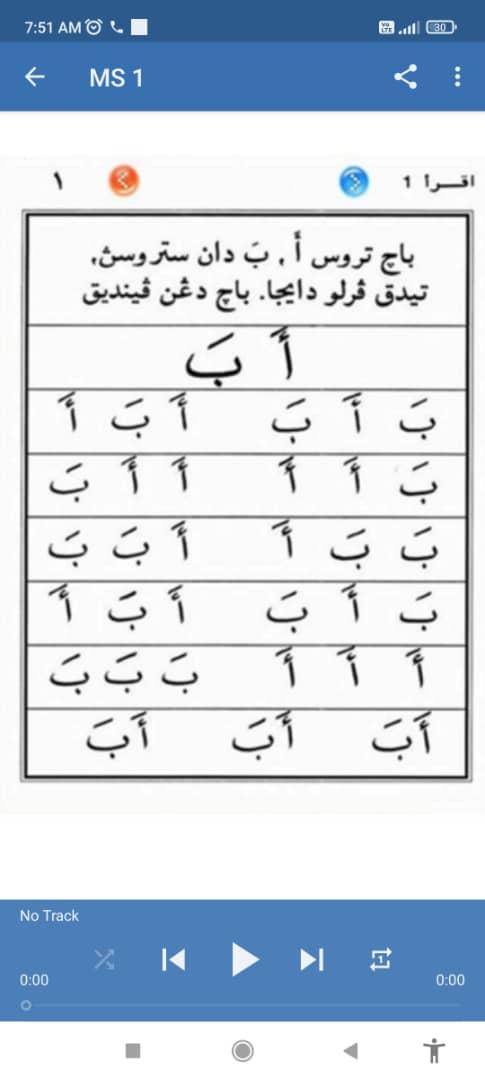 7:51 AM
Vo LTE 30
MS 1
اقرأ 1 ١
باچ تروس أَ ، بَ دان ستروسڽ،
تيدق ڤرلو دايجا. باچ دڠن ڤينديق
أَ بَ
بَ أَ بَ أَ بَ أَ
بَ أَ أَ أَ أَ بَ
بَ بَ أَ أَ بَ بَ
بَ أَ بَ أَ بَ أَ
أَ أَ أَ بَ بَ بَ
أَبَ أَبَ أَبَ
No Track
1
0:00 0:00